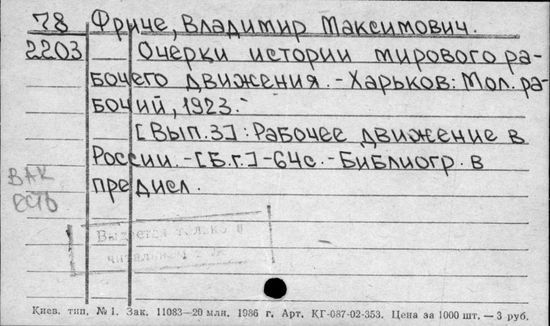 78 Фриче, Владимир Максимович.
2203 Очерки истории мирового ра-
бочего движения. - Харьков: Мол. ра-
бочий, 1923. -
[Вып.3]: Рабочее движение в
России. - [Б.г.] - 64с. - Библиогр. в
предисл.
ВАК
есть
только в
Киев. тип. № 1. Зак. 11083—20 млн. 1986 г. Арт. КГ-087-02-353. Цена за 1000 шт. — 3 руб.